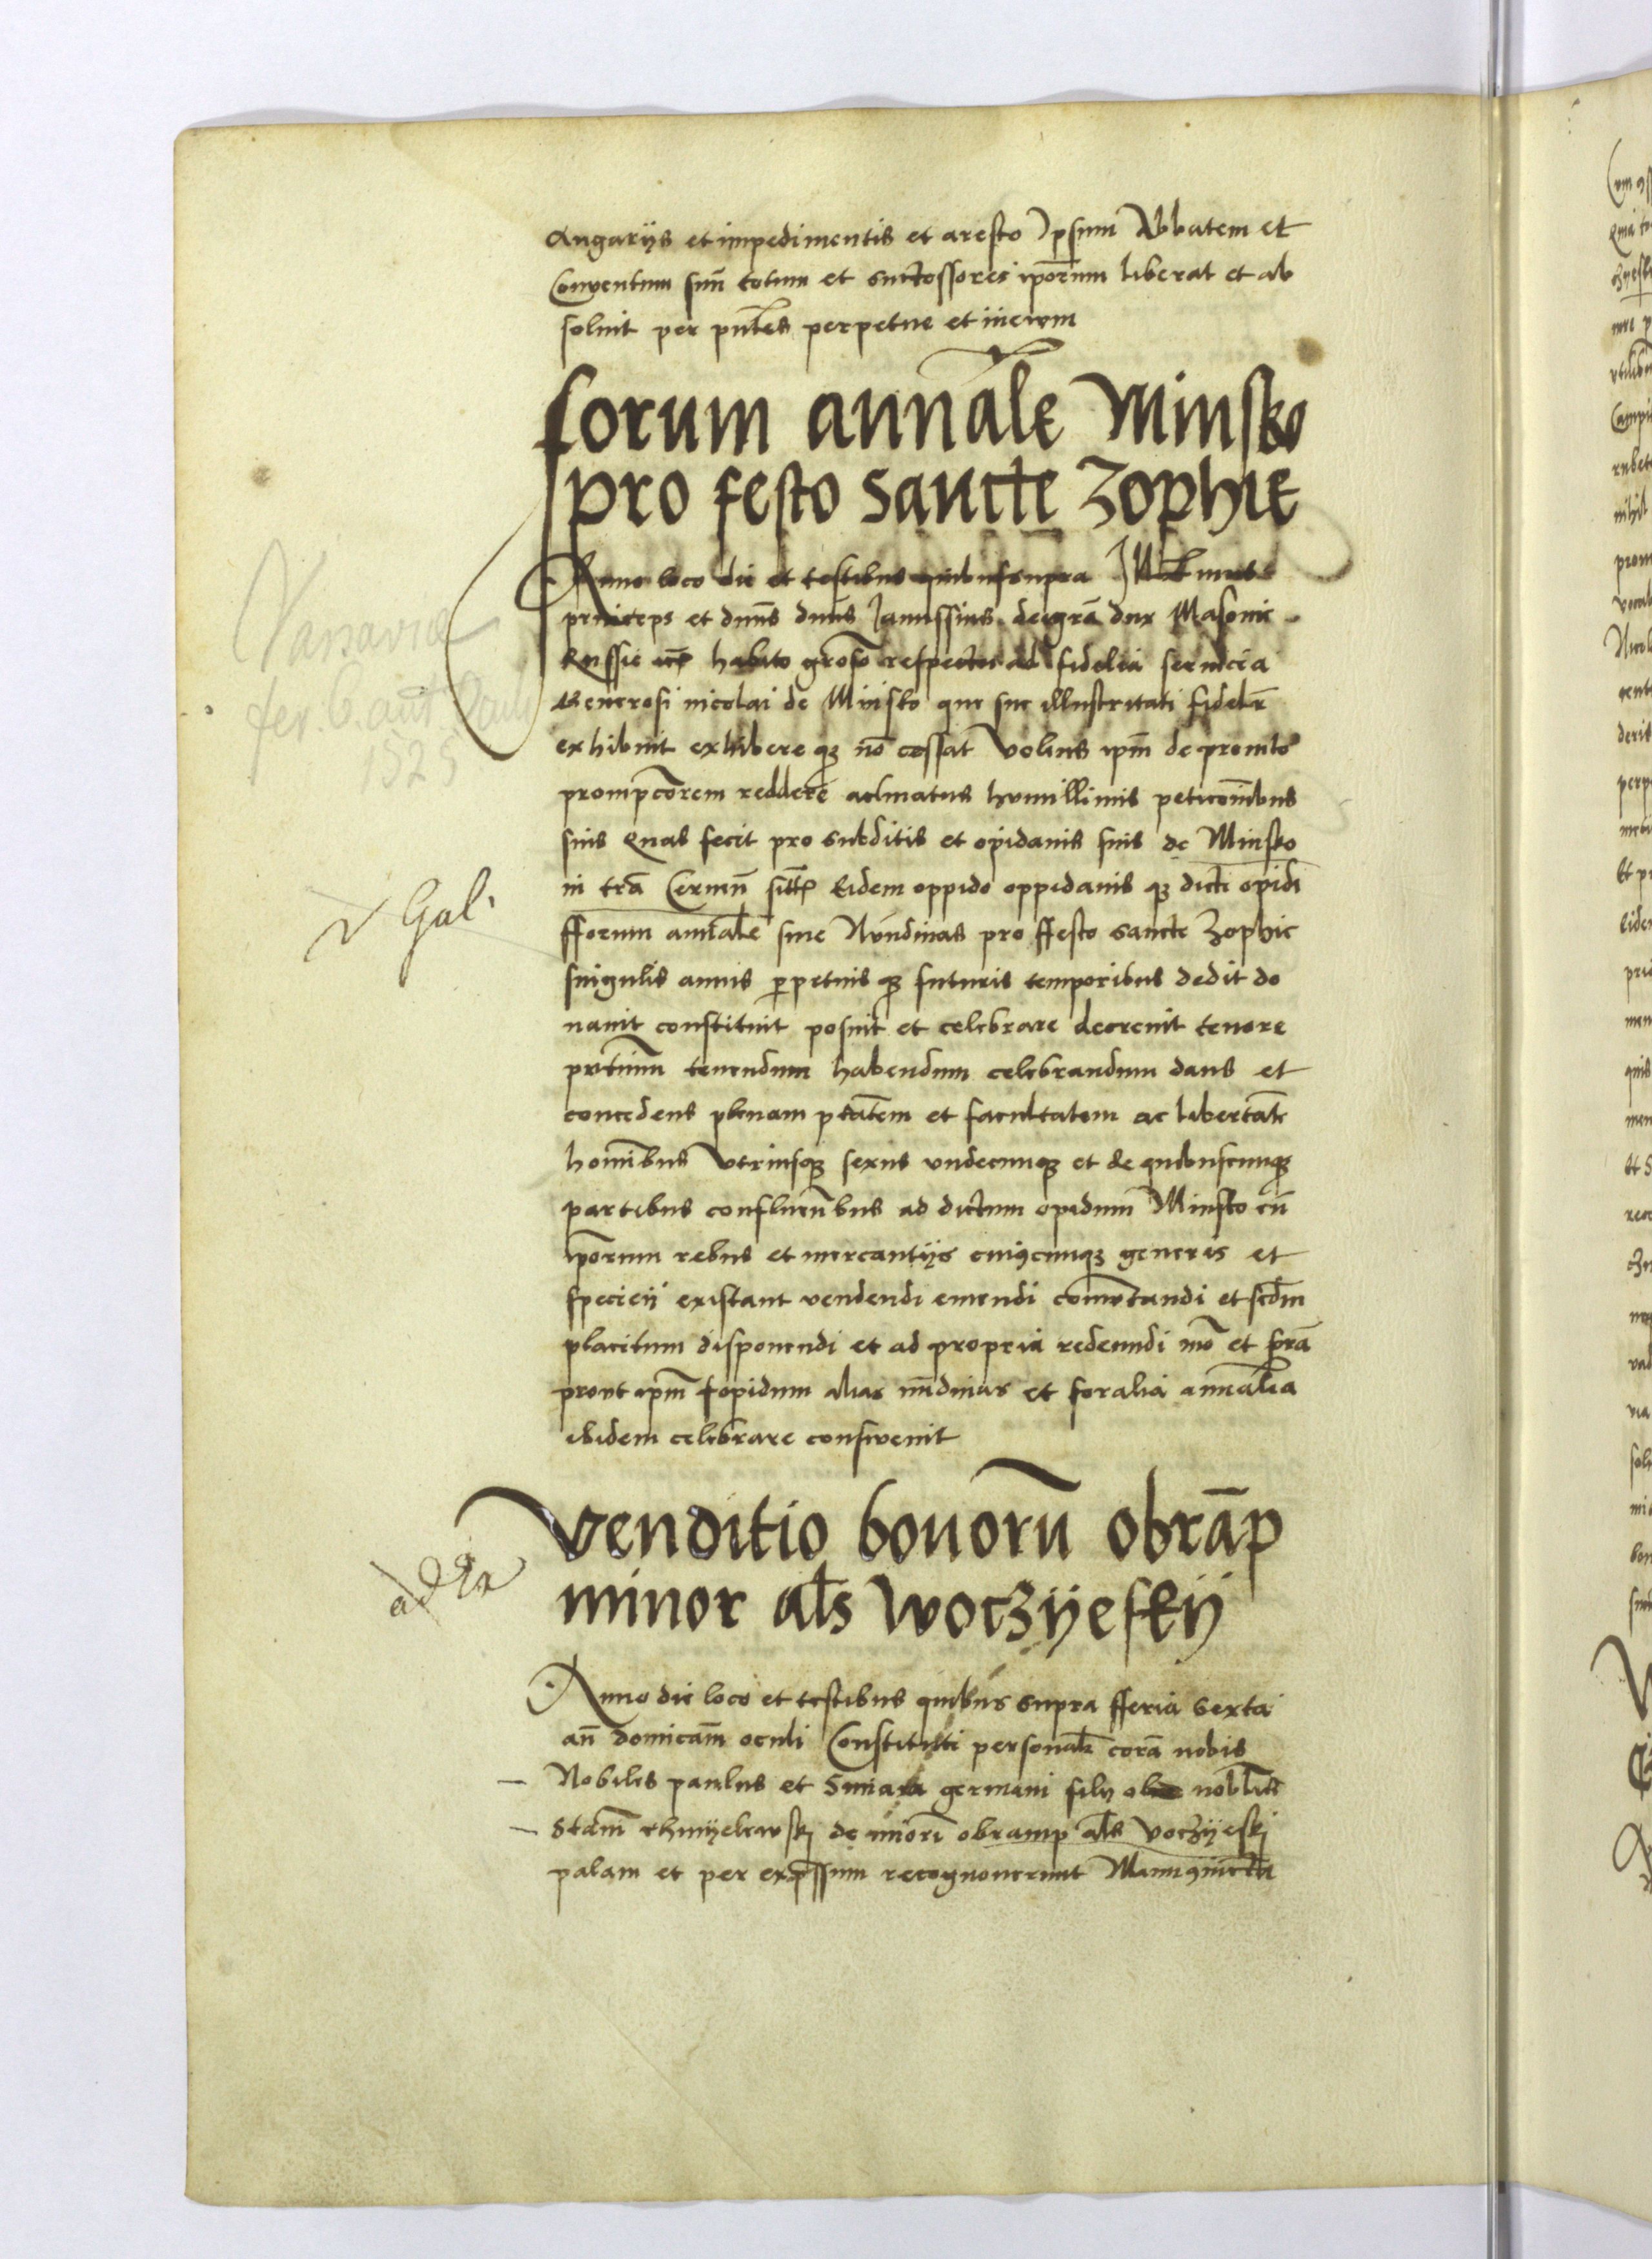 Angarijs et impedimentis et aresto Ipsum Abbatem et
Conventum suū totum et successores ipōrum liberat et ab
solvit per pn̄tes perpetue et in ewm
forum annāle Minsko
pro festo sancte Zophie
Anno loco die et testibus quibus supra Illust
princeps et dn̄us dn̄us Janussius dei grā dux Masovie
Russie etc̄ habito groso respectu ad fidelia servicia
Generosi nicolai de Minsko que sue illustritati fidelr̄
exhibuit exhibere q₃ nō cessat Volens ipm̄ de promto
prompciorem reddere aclinatus humillimis peticōnibus
suis Quas fecit pro subditis et opidanis suis de Minsko
in trā Cernēn̄ Eidem oppido oppidanis q₃ dicti opidi
fforum annāle sive Nundinas pro ffesto sancte Zophie
singulis annis perpetuis q₃ futuris temporibus dedit do
navit constituit posuit et celebrare decrevit tenore
pn̄tium tenendum habendum celebrandum dans et
concedens plenam ptātem et facultatem ac libertatē
hominibus Utriusq₃ sexus undecunq₃ et de quibuscunq₃
partibus confluen̄bus ad dictum opidum Minsko cū
ipōrum rebus et mercantijs cuiuscunq₃ generis et
speciei existant vendendi emendi commutandi et scdm̄
placitum disponendi et ad propria redeundi mō et formā
prout ipm̄ opidum alias nundinas et foralia annalia
ibidem celebrare consuevit
Venditio bonorū obrāp
minor al̄s Woczÿeskÿ
Anno die loco et testibus quibus supra fferia Sexta
an̄ domicām oculi Constituti personalr̄ corā nobis
Nobiles paulus et germani filij olim nobilis
Stam̄ chmÿelewskj de minori obramp al̄s Voczÿeskj
palam et per expssum recognoverunt Manu
Varsaviæ
fer. 6 ant
1525
v Gal.